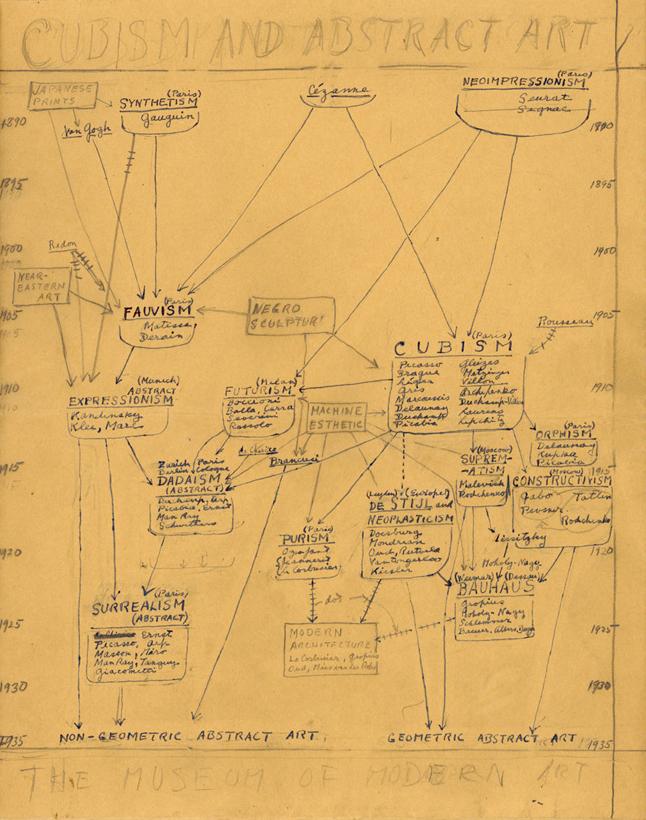 CUBISM AND ABSTRACT ART
JAPANESE
PRINTS
(Paris)
SYNTHETISM
Gauguin
Van Gogh
Cézanne
(Paris)
NEOIMPRESSIONISM
Seurat
Signac
1890
1890
1895
1895
1900
1900
Redon
NEAR-
EASTERN
ART
1905
1905
(Paris)
FAUVISM
Matisse
Derain
NEGRO
SCULPTURE
Rousseau
(Paris)
CUBISM
Picasso
Braque
Léger
Gris
Marcoussis
Delaunay
Duchamp
Picabia
Gleizes
Metzinger
Villon
Archipenko
Duchamp-Villon
Laurens
Lipchitz
1910
1910
(Munich)
ABSTRACT
EXPRESSIONISM
Kandinsky
Klee, Marc
(Milan)
FUTURISM
Boccioni
Balla, Carra
Severini
Russolo
MACHINE
ESTHETIC
(Paris)
ORPHISM
Delaunay
Kupka
Picabia
de Chirico
Brancusi
Zurich Paris
Berlin Cologne
DADAISM
(ABSTRACT)
Duchamp, Arp
Picabia, Ernst
Man Ray
Schwitters
1915
1915
(Moscow)
SUPREM-
-ATISM
Malevich
Rodchenko
(Moscow)
CONSTRUCTIVISM
Gabo Tatlin
Pevsner
Rodchenko
Lissitzky
(Leyden) (Europe)
DE STIJL and
NEOPLASTICISM
Doesburg
Mondrian
Oud, Rietveld
Vantongerloo
Kiesler
(Paris)
PURISM
Ozenfant
Jeanneret
Le Corbusier
1920
1920
Moholy-Nagy
(Weimar) (Dessau)
BAUHAUS
Gropius
Moholy-Nagy
Schlemmer
Breuer, Albers, Bayer
(Paris)
SURREALISM
(ABSTRACT)
Ernst
Picasso, Arp
Masson, Miro
Man Ray, Tanguy
Giacometti
dot
MODERN
ARCHITECTURE
Le Corbusier, Gropius
Oud, Mies van der Rohe
1925
1925
1930
1930
1935
NON-GEOMETRIC ABSTRACT ART.
GEOMETRIC ABSTRACT ART
1935
THE MUSEUM OF MODERN ART